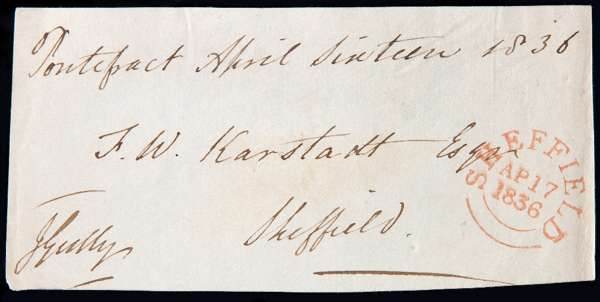 Pontefract April Sixteen 1836
F. W. Karstadt Esqr
Sheffield.
J Gully
SHEFFIELD
AP 17
1836